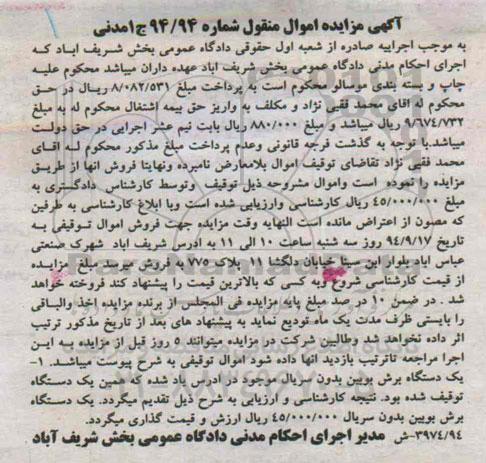 آگهی مزایده اموال منقول شماره ۹۴/۹۴ ج ا مدنی
به موجب اجراییه صادره از شعبه اول حقوقی دادگاه عمومی بخش شریف اباد که
اجرای احکام مدنی دادگاه عمومی بخش شریف اباد عهده داران میباشد محکوم علیه
چاپ و بسته بندی موسالو محکوم است به پرداخت مبلغ ۸/۰۸۲/۵۳۱ ریال در حق
محکوم له اقای محمد فقیی نژاد و مکلف به واریز حق بیمه اشتغال محکوم له به مبلغ
۹/۶۷۴/۷۳۲ ریال میباشد و مبلغ ۸۸۰/۰۰۰ ریال بابت نیم عشر اجرایی در حق دولت
میباشد.با توجه به گذشت فرجه قانونی وعدم پرداخت مبلغ مذکور محکوم لـه اقای
محمد فقیی نژاد تقاضای توقیف اموال بلامعارض نامبرده ونهایتا فروش انها از طریق
مزایده را نموده است واموال مشروحه ذیل توقیف وتوسط کارشناس دادگستری به
مبلغ ۴۵/۰۰۰/۰۰۰ ریال کارشناسی وارزیابی شده است وبا ابلاغ کارشناسی به طرفین
که مصون از اعتراض مانده است النهایه وقت مزایده جهت فروش اموال توقیفی به
تاریخ ۹۴/۹/۱۷ روز سه شنبه ساعت ۱۰ الی ۱۱ به ادرس شریف اباد شهرک صنعتی
عباس اباد بلوار ابن سینا خیابان دلگشا ۱۱ پلاک ۷۷۵ فروش نوبت مبلغ مزایده
از قیمت کارشناسی شروع وبه کسی که بالاترین قیمت را پیشنهاد کند فروخته خواهد
شد . در ضمن ۱۰ در صد مبلغ پایه مزایده فی المجلس از برنده مزایده اخذ والباقی
را بایستی ظرف مدت یک ماه تودیع نماید به پیشنهاد های بعد از تاریخ مذکور ترتیب
اثر داده نخواهد شد وطالبین شرکت در مزایده میتوانند ۵ روز قبل از مزایده به این
اجرا مراجعه تاترتیب بازدید انها داده شود اموال توقیفی به شرح پیوست میباشد. ۱-
یک دستگاه برش بوبین بدون سریال موجود در ادرس یاد شده که همین یک دستگاه
توقیف شده بود. نتیجه کارشناسی و ارزیابی به شرح ذیل تقدیم میگردد. یک دستگاه
برش بوبین بدون سریال ۴۵/۰۰۰/۰۰۰ ریال ارزش و قیمت گذاری میگردد.
۳۹۷۴/۹۴-ش مدیر اجرای احکام مدنی دادگاه عمومی بخش شریف آباد